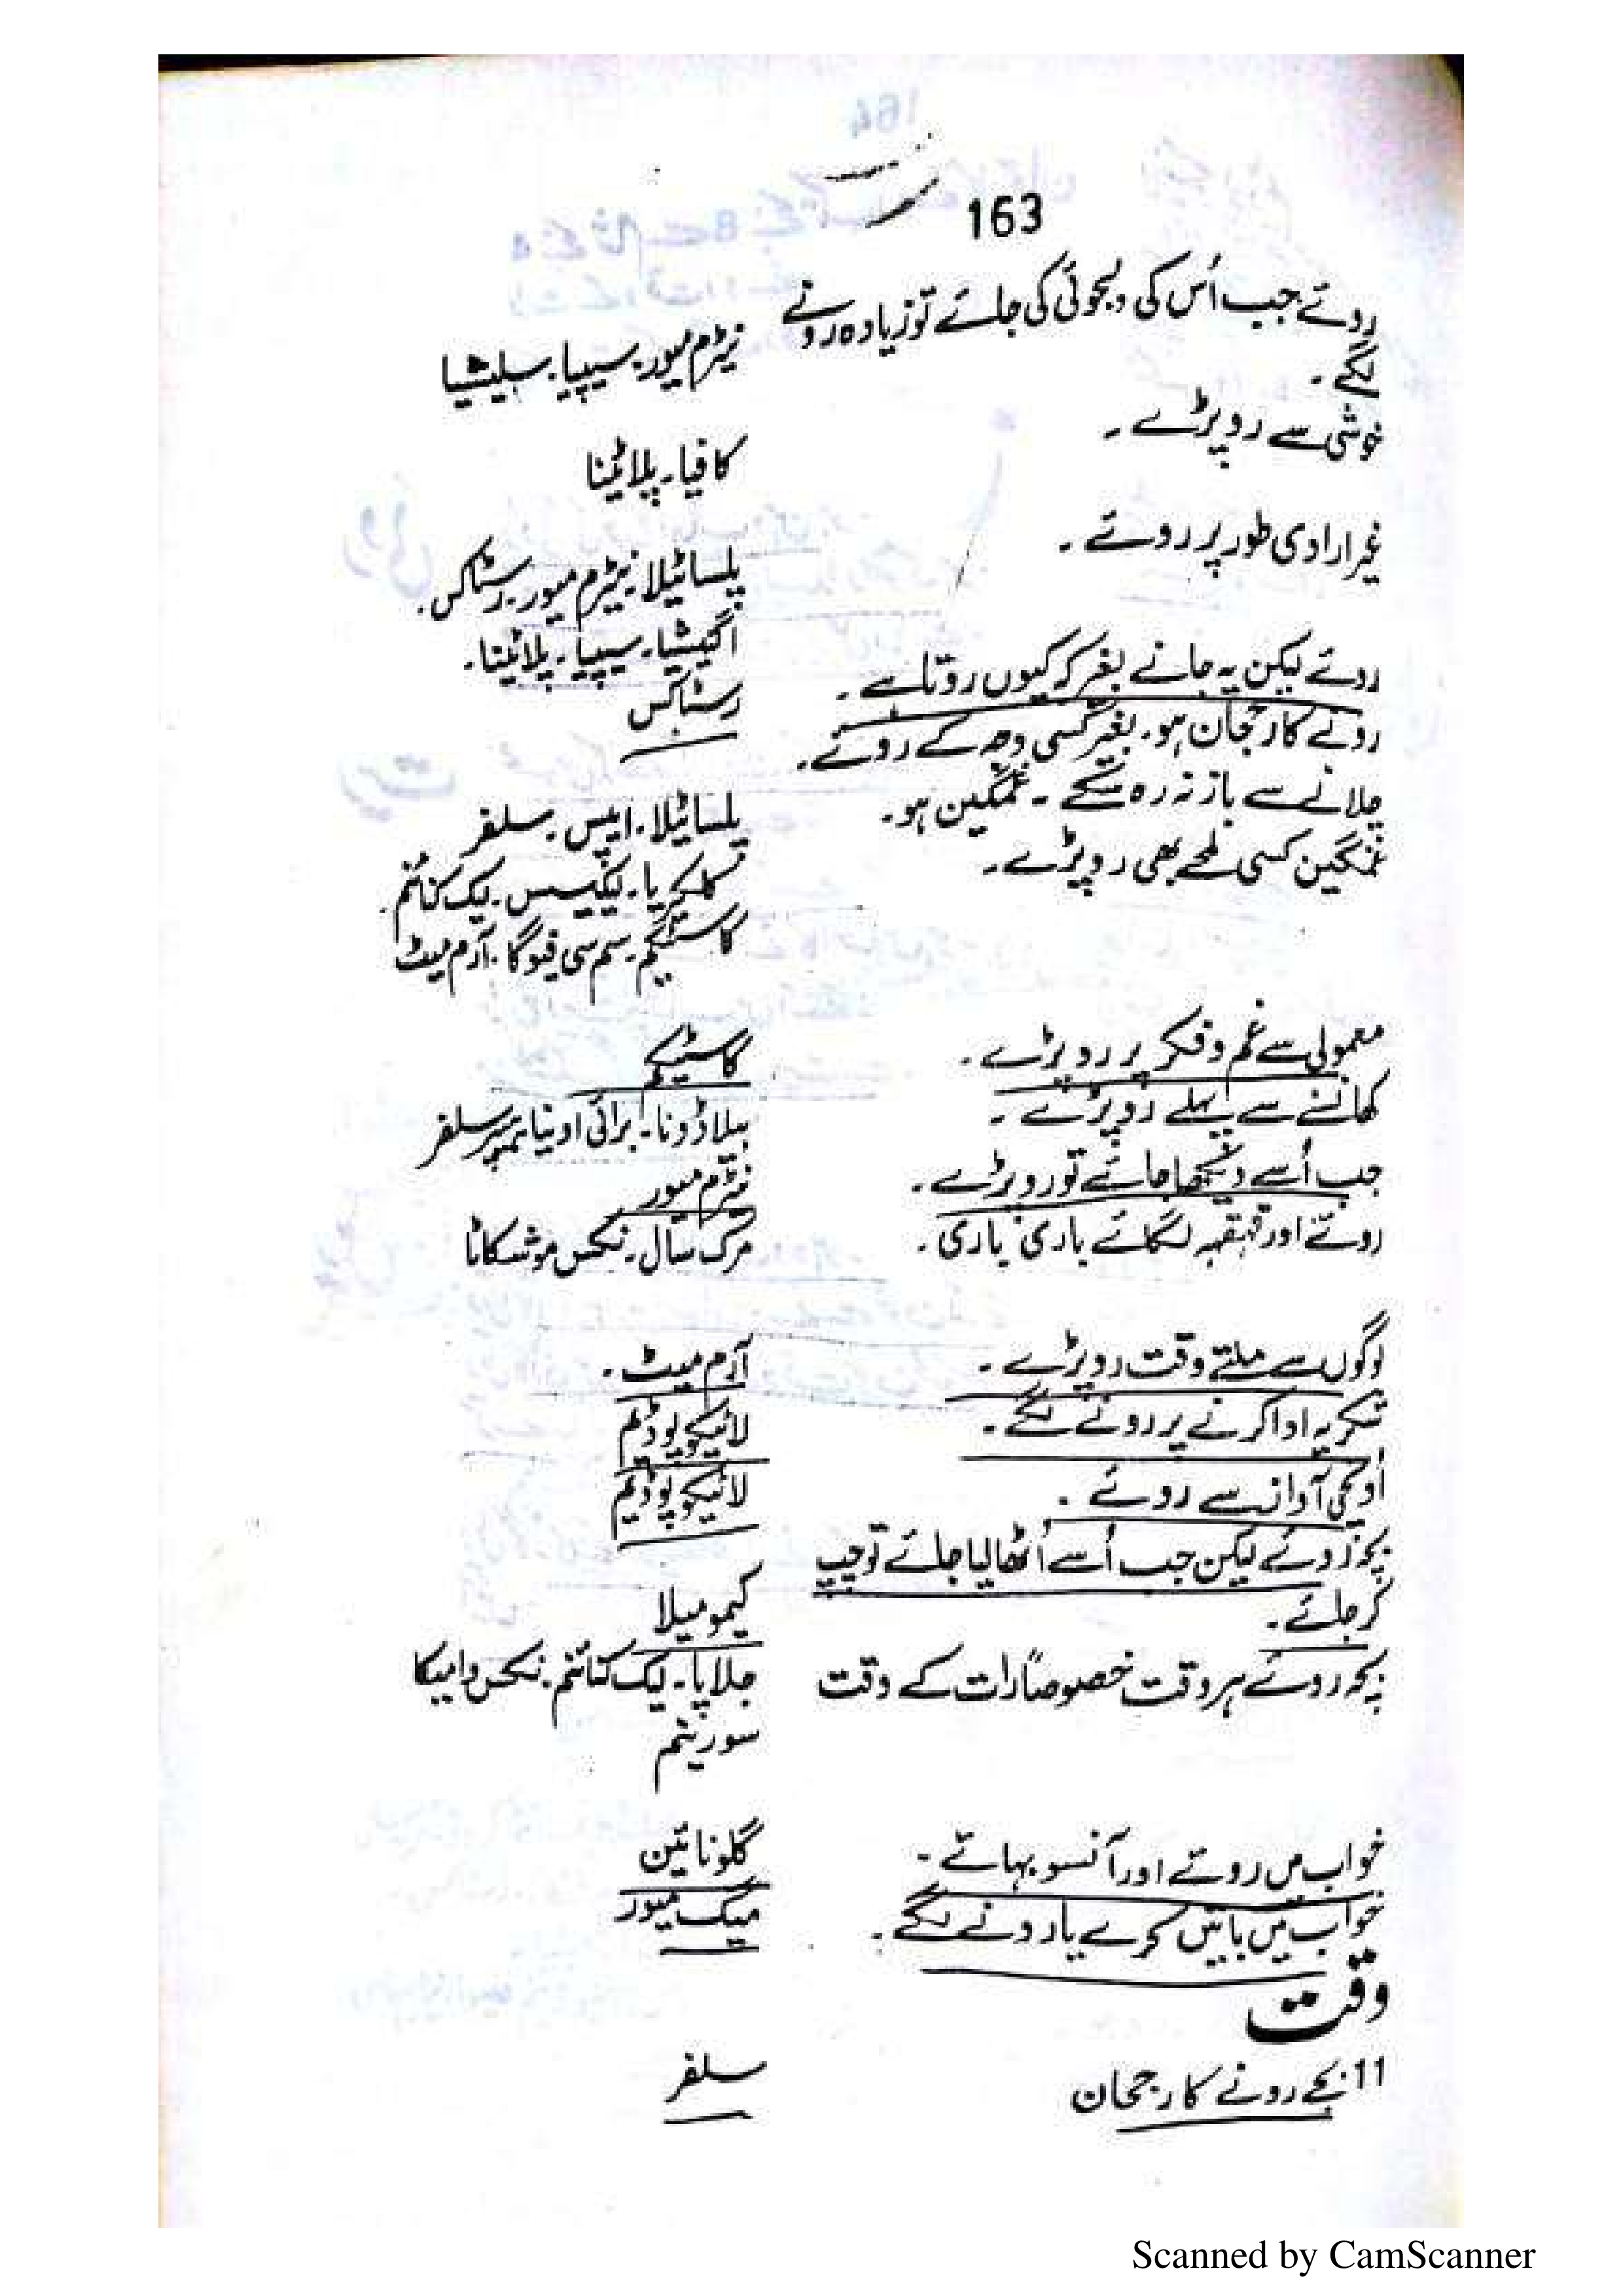 163
روئے جب اُس کی دلجوئی کی جائے تو زیادہ رونے
لگے۔
نیٹرم میور۔ سیپیا۔ سلیشیا
خوشی سے رو پڑے۔
کافیا۔ پلاٹینا
غیر ارادی طور پر روئے۔
پلساٹیلا۔ نیٹرم میور۔ رسٹاکس۔
اگنیشیا۔ سیپیا۔ پلاٹینا۔
روئے لیکن یہ جانے بغیر کہ کیوں روتا ہے۔
رسٹاکس
رونے کا رجحان ہو۔ بغیر کسی وجہ کے روئے۔
چلانے سے باز نہ رہ سکے۔ غمگین ہو۔
پلساٹیلا۔ ایپس۔ سلفر
غمگین کسی لمحے بھی رو پڑے۔
کلکیریا۔ لیکیسس۔ لیک کنائنم۔
کاسٹیکم۔ سم سی فیوگا۔ آرم میٹ
معمولی سے غم و فکر پر رو پڑے۔
کاسٹیکم
کھانسے سے پہلے رو پڑے۔
بیلاڈونا۔ برائی اونیا۔ ہیپر سلفر
جب اُسے دیکھا جائے تو رو پڑے۔
نیٹرم میور
روئے اور قہقہہ لگائے باری باری۔
مرک سال۔ نکس موشکاٹا
لوگوں سے ملتے وقت رو پڑے۔
آرم میٹ۔
شکریہ ادا کرنے پر رونے لگے۔
لائیکوپوڈیم
اُونچی آواز سے روئے۔
لائیکوپوڈیم
بچہ روئے لیکن جب اُسے اُٹھا لیا جائے تو چپ
کر جائے۔
کیمومیلا
بچہ روئے ہر وقت خصوصاً رات کے وقت
جلاپا۔ لیک کنائنم۔ نکس وامیکا
سورینم
خواب میں روئے اور آنسو بہائے۔
گلونائین
خواب میں باتیں کرے یا رونے لگے۔
میگ میور
وقت
11 بجے رونے کا رجحان
سلفر
Scanned by CamScanner